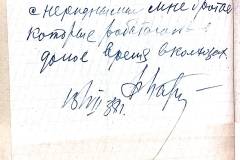 с неродными мне брата
которые работали в
долгое время в колхозах.
18/VII 38г.